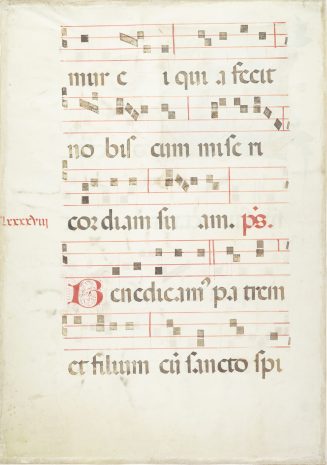 mur e i qui a fecit
no bis cum mise ri
cor diam su am. ps.
lxxxxviii
Benedicam⁹ pa trem
et filium cū sancto spi